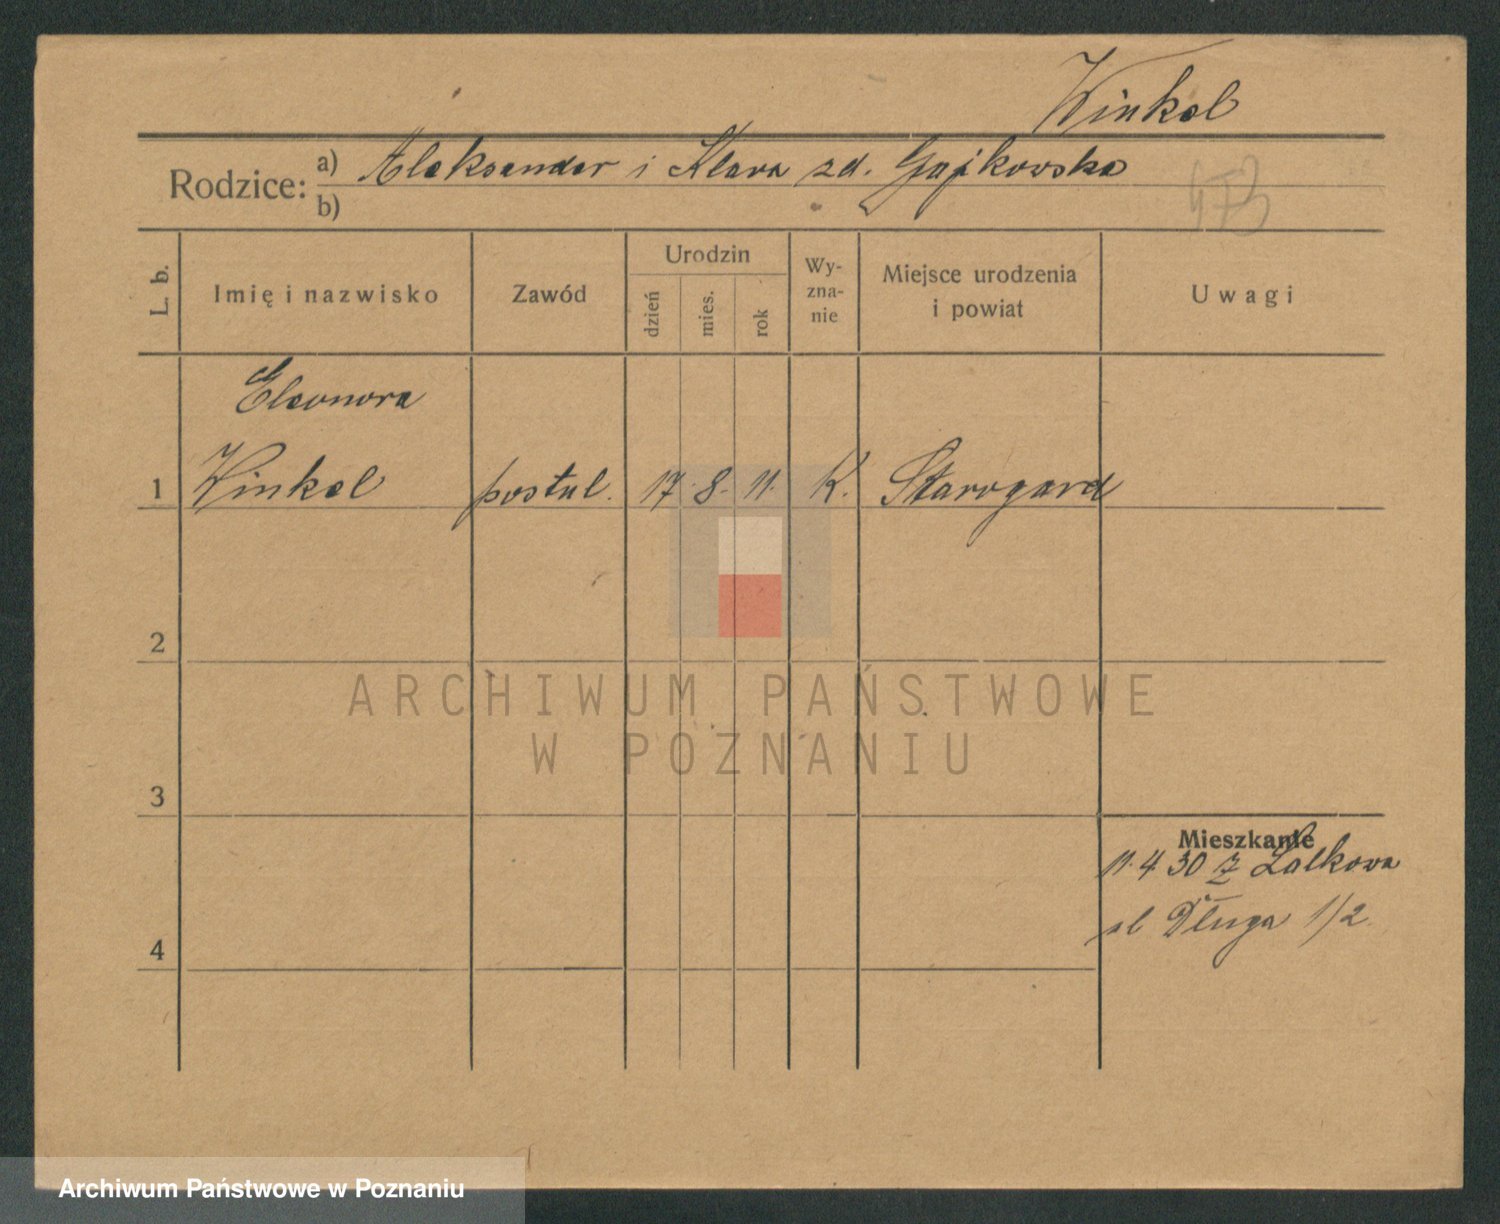 Winkel
Rodzice: a) Aleksander i Klara zd. Gajkowska
b)
L. b.
Imię i nazwisko
Zawód
Urodzin
dzień
mies.
rok
Wy-
zna-
nie
Miejsce urodzenia
i powiat
Uwagi
Eleonora
1 Winkel postul. 17. 8. 11. K. Starogard
2
3
4
Mieszkanie
11. 4 30 z Lalkowa
ul Długa 1/2
ARCHIWUM PAŃSTWOWE
W POZNANIU
Archiwum Państwowe w Poznaniu